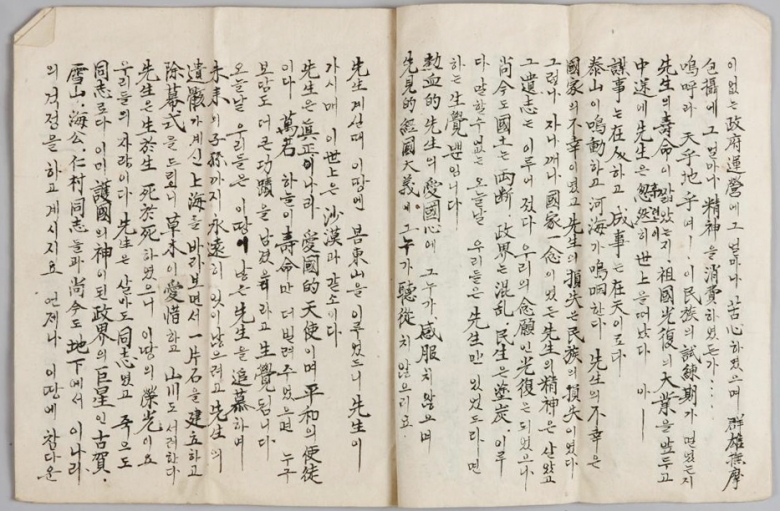 이없는 政府運營에 그얼마나 苦心하였으며 群雄撫摩
包攝에 그얼마나 精神을 消費하였든가....
嗚呼라 天乎地乎여! 이民族의 試練期가 먼었는지
先生의 壽命이 짧았는지. 祖國光復의 大業을 앞두고
中途에 先生은 忽然히 世上을 떠났다 아ー
謀事는 在人하고 成事는 在天이로다
泰山이 鳴動하고 河海가 嗚咽한다. 先生의 不幸은
國家의 不幸이였고 先生의 損失은 民族의 損失이였다
그러나 자나깨나 國家一念이있는 先生의 精神은 살았고
그遺志는 이루어졌다 우리의 念願인 光復는 되였으나
尙今도 國土는 両断 政界는 混乱 民生은 塗炭 이루
다 말할수없는 오늘날 우리들은 先生만 있었드라면
하는 生覺뿐입니다
熱血的 先生의 愛國心에 그누가 感服치 않으며
先見的 經國大義에 그누가 聽從치 않으리요.
先生계신대 이땅에 春東山을 이루었드니 先生이
가시매 이世上은 沙漠과 같소이다
先生은 眞正이나라 愛國的天使이며 平和의 使徒
이다 萬若 하늘이 壽命만 더빌려주었으면 누구
보담도 더큰 功蹟을 남겼을라고 生覺됩니다
오늘날 우리들은 이땅이 낳은 先生을 追慕하며
未來의 子孫까지 永遠히 잊이않으려고 先生의
遺骸가계신 上海를 바라보면서 一片石을 建立하고
除幕式을 드리니 草木이 愛惜하고 山川도 서러한다
先生은 生於生 死於死하였으니 이땅의 榮光이요
우리들의 자랑이다 先生은 살아도 同志였고 죽으도
同志로다 이미 護國의神이된 政界의 巨星인 古賀.
雪山.海公.仁村同志들과 尙今도 地下에서 이나라
의 걱정을 하고계시지요 언제나 이땅에 참다운